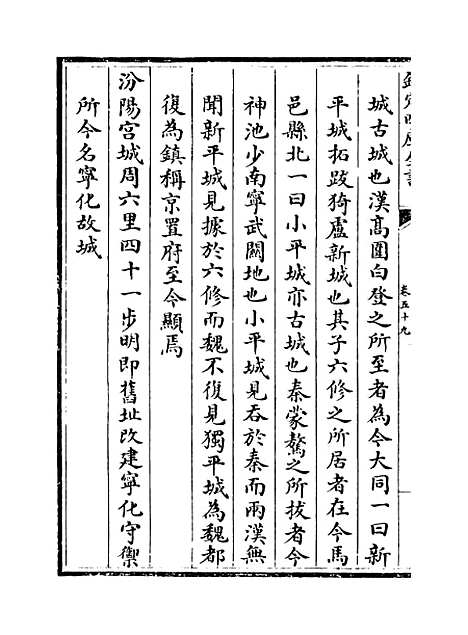 城古城也漢髙圍白登之所至者為今大同一曰新
平城拓跋猗盧新城也其子六修之所居者在今馬
邑縣北一曰小平城亦古城也秦蒙驁之所拔者今
神池少南寧武關地也小平城見吞於秦而兩漢無
聞新平城見據於六修而魏不復見獨平城為魏都
復為鎮稱京置府至今顯焉
汾陽宫城周六里四十一步明即舊址改建寧化守禦
所今名寧化故城
卷五十九